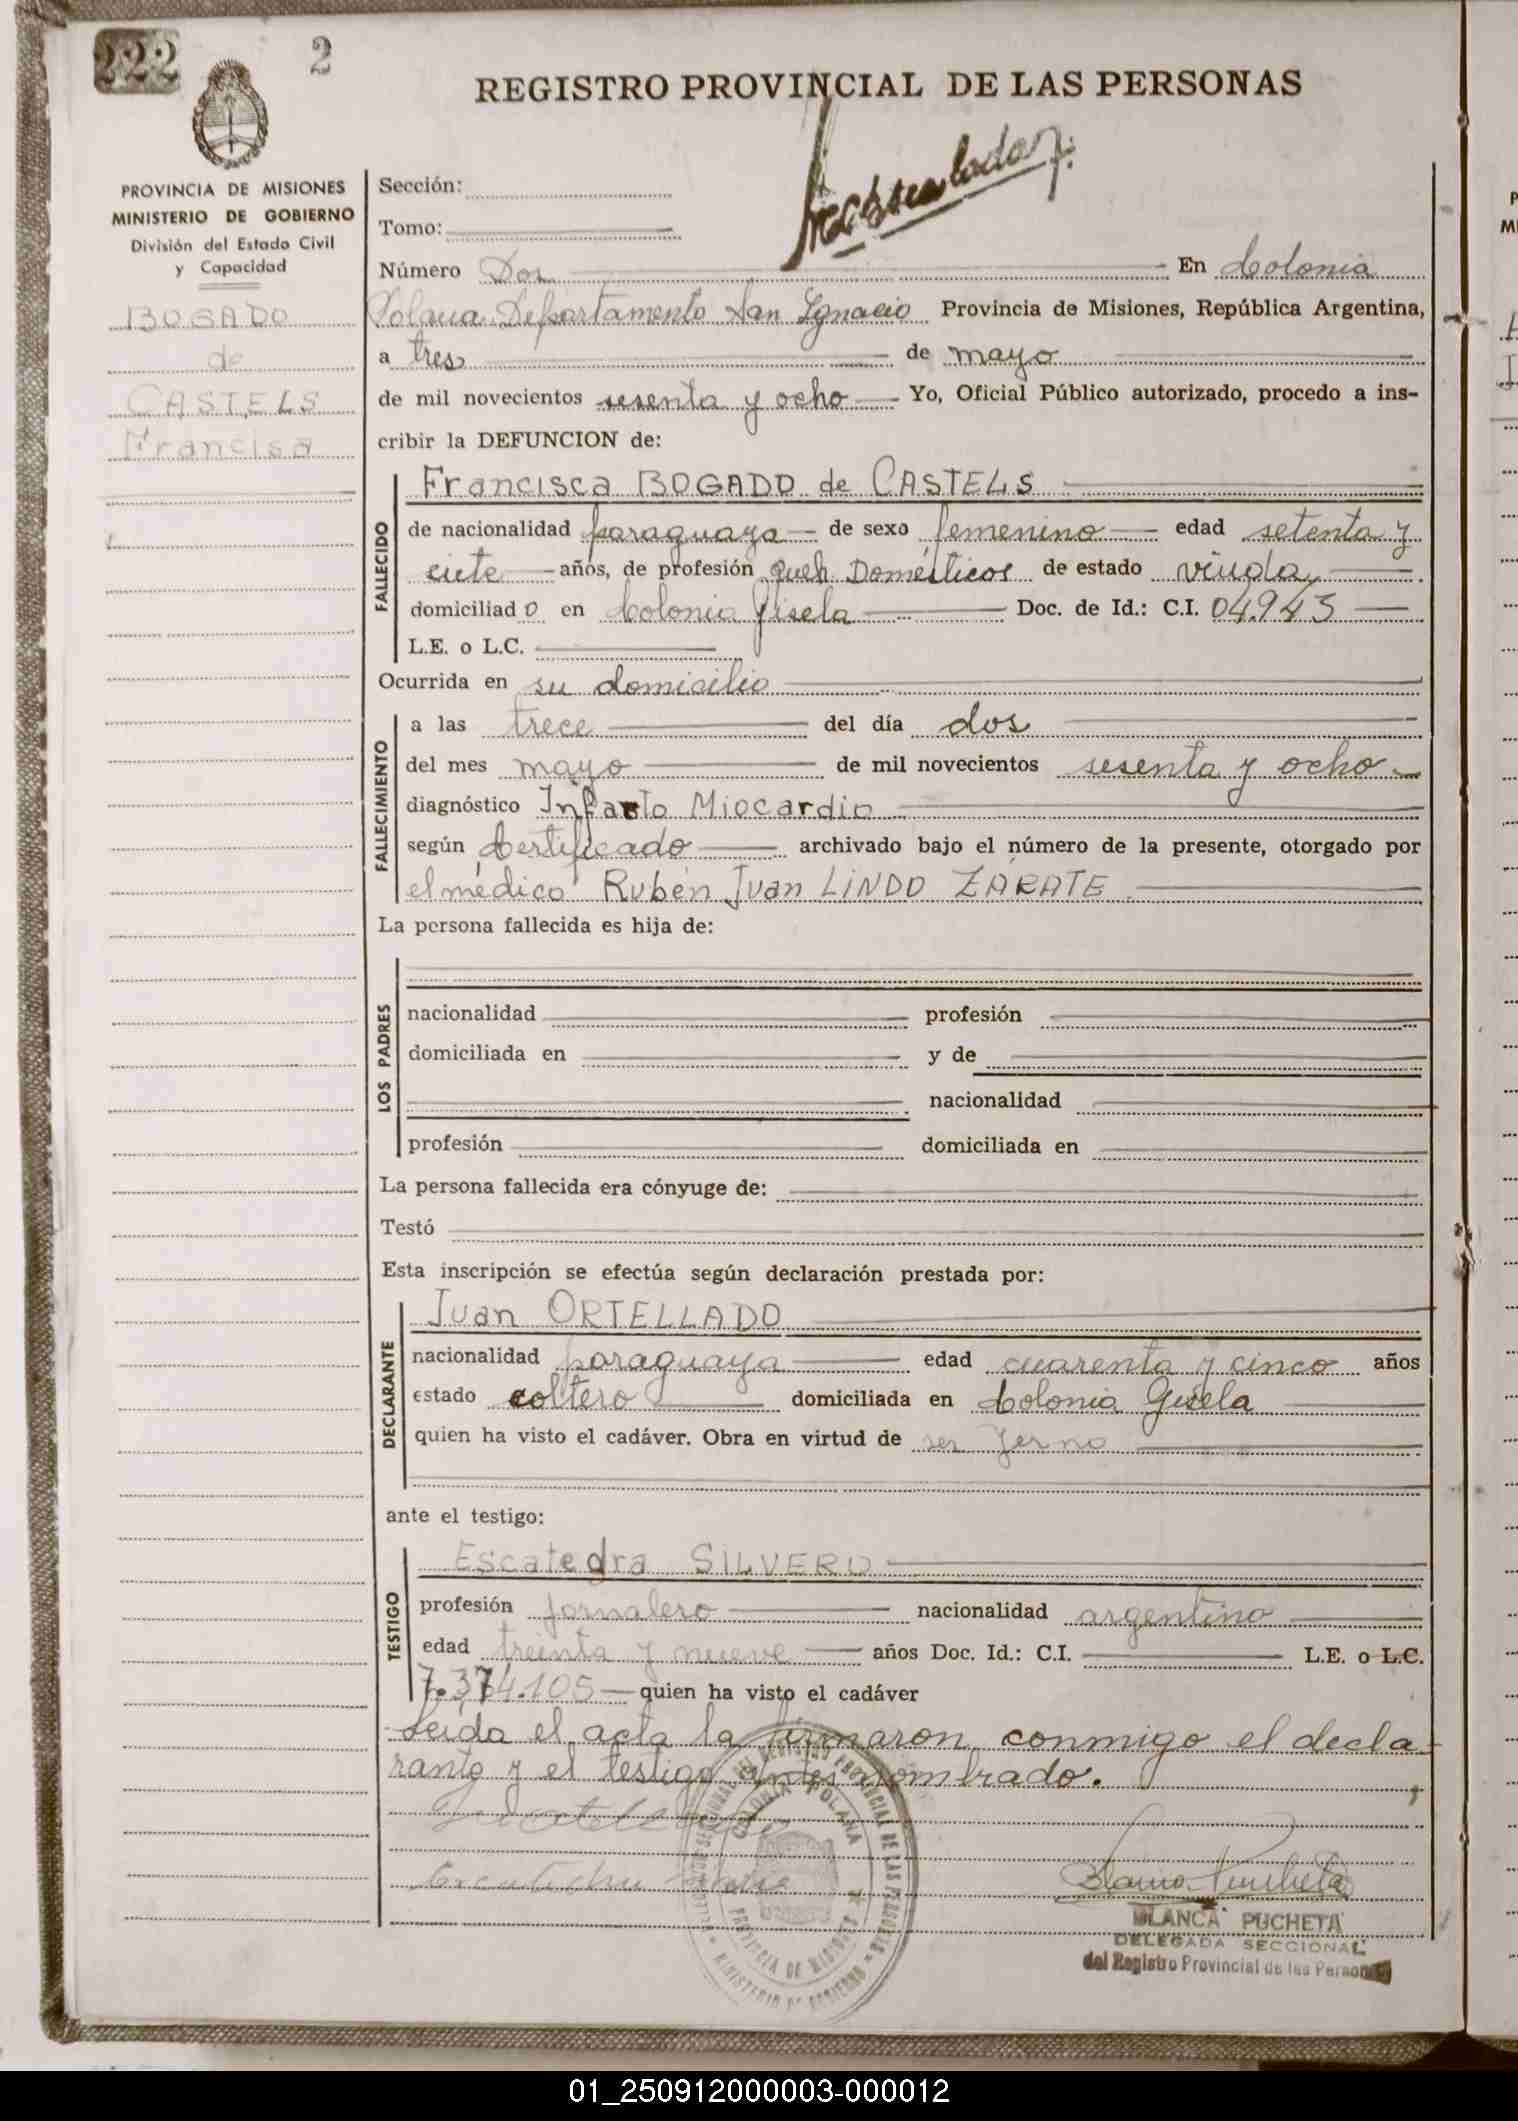 222
2
REGISTRO PROVINCIAL DE LAS PERSONAS
PROVINCIA DE MISIONES
MINISTERIO DE GOBIERNO
División del Estado Civil
y Capacidad
BOGADO
de
CASTELS
Francisa
Sección:
Tomo:
Número Dos En Colonia
Polana Departamento San Ignacio Provincia de Misiones, República Argentina,
a tres de mayo
de mil novecientos sesenta y ocho Yo, Oficial Público autorizado, procedo a ins-
cribir la DEFUNCION de:
FALLECIDO
Francisca BOGADO de CASTELS
de nacionalidad paraguaya de sexo femenino edad setenta y
ciete años, de profesión Queh. Domésticos de estado viuda
domiciliado en Colonia Gisela Doc. de Id.: C.I. 04.943
L.E. o L.C.
Ocurrida en su domicilio
FALLECIMIENTO
a las trece del día dos
del mes mayo de mil novecientos sesenta y ocho
diagnóstico Infarto Miocardio
según Certificado archivado bajo el número de la presente, otorgado por
el médico Rubén Juan LINDO ZÁRATE
La persona fallecida es hija de:
LOS PADRES
nacionalidad profesión
domiciliada en y de
nacionalidad
profesión domiciliada en
La persona fallecida era cónyuge de:
Testó
Esta inscripción se efectúa según declaración prestada por:
DECLARANTE
Juan ORTELLADO
nacionalidad paraguaya edad cuarenta y cinco años
estado coltero domiciliada en Colonia Gisela
quien ha visto el cadáver. Obra en virtud de ser yerno
ante el testigo:
TESTIGO
Escatedra SILVERO
profesión jornalero nacionalidad argentino
edad treinta y nueve años Doc. Id.: C.I. L.E. o L.C.
7.374.105 quien ha visto el cadáver
Leida el acta la firmaron conmigo el decla-
rante y el testigo antes nombrado.
COLONIA POLANA
PROVINCIA DE MISIONES
MINISTERIO DE GOBIERNO
Blanca Pucheta
BLANCA PUCHETA
DELEGADA SECCIONAL
del Registro Provincial de las Personas
01_250912000003-000012